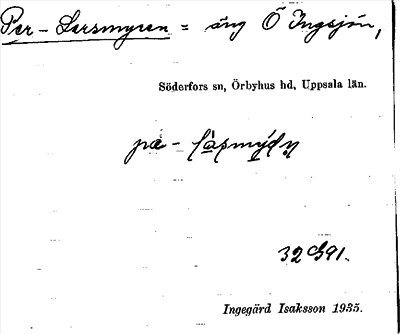 Per-Larsmyren = äng Ö Ingsjön,
Söderfors sn, Örbyhus hd, Uppsala län.
32 G 91.
Ingegärd Isaksson 1935.